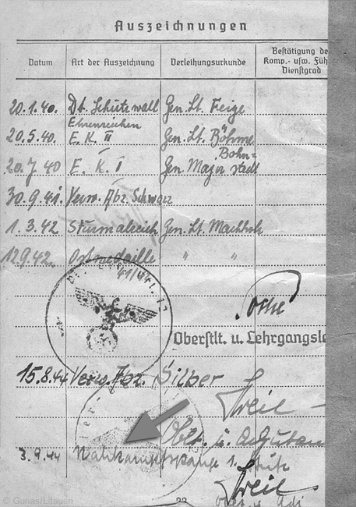 Auszeichnungen
Datum Art der Auszeichnung Verleihungsurkunde Bestätigung de
Komp.- usw. Füh
Dienstgrad
20.1.40. Dt. Schutzwall Gen. Lt. Feige
Ehrenzeichen
20.5.40. E. K. II Gen. Lt. Böhme
20.7.40 E. K. I Gen. Major Bohn=
stedt
30.9.41. Verw. Abz. Schwarz
1.3.42 Sturmabzeich Gen. Lt.
12.9.42. Ostmedaille " "
Oberstlt. u. Lehrgangsle
15.8.44 Verw. Abz. Silber
Oblt. u. Adjutan
3.9.44 Nahkampfspange 1. Stufe
22